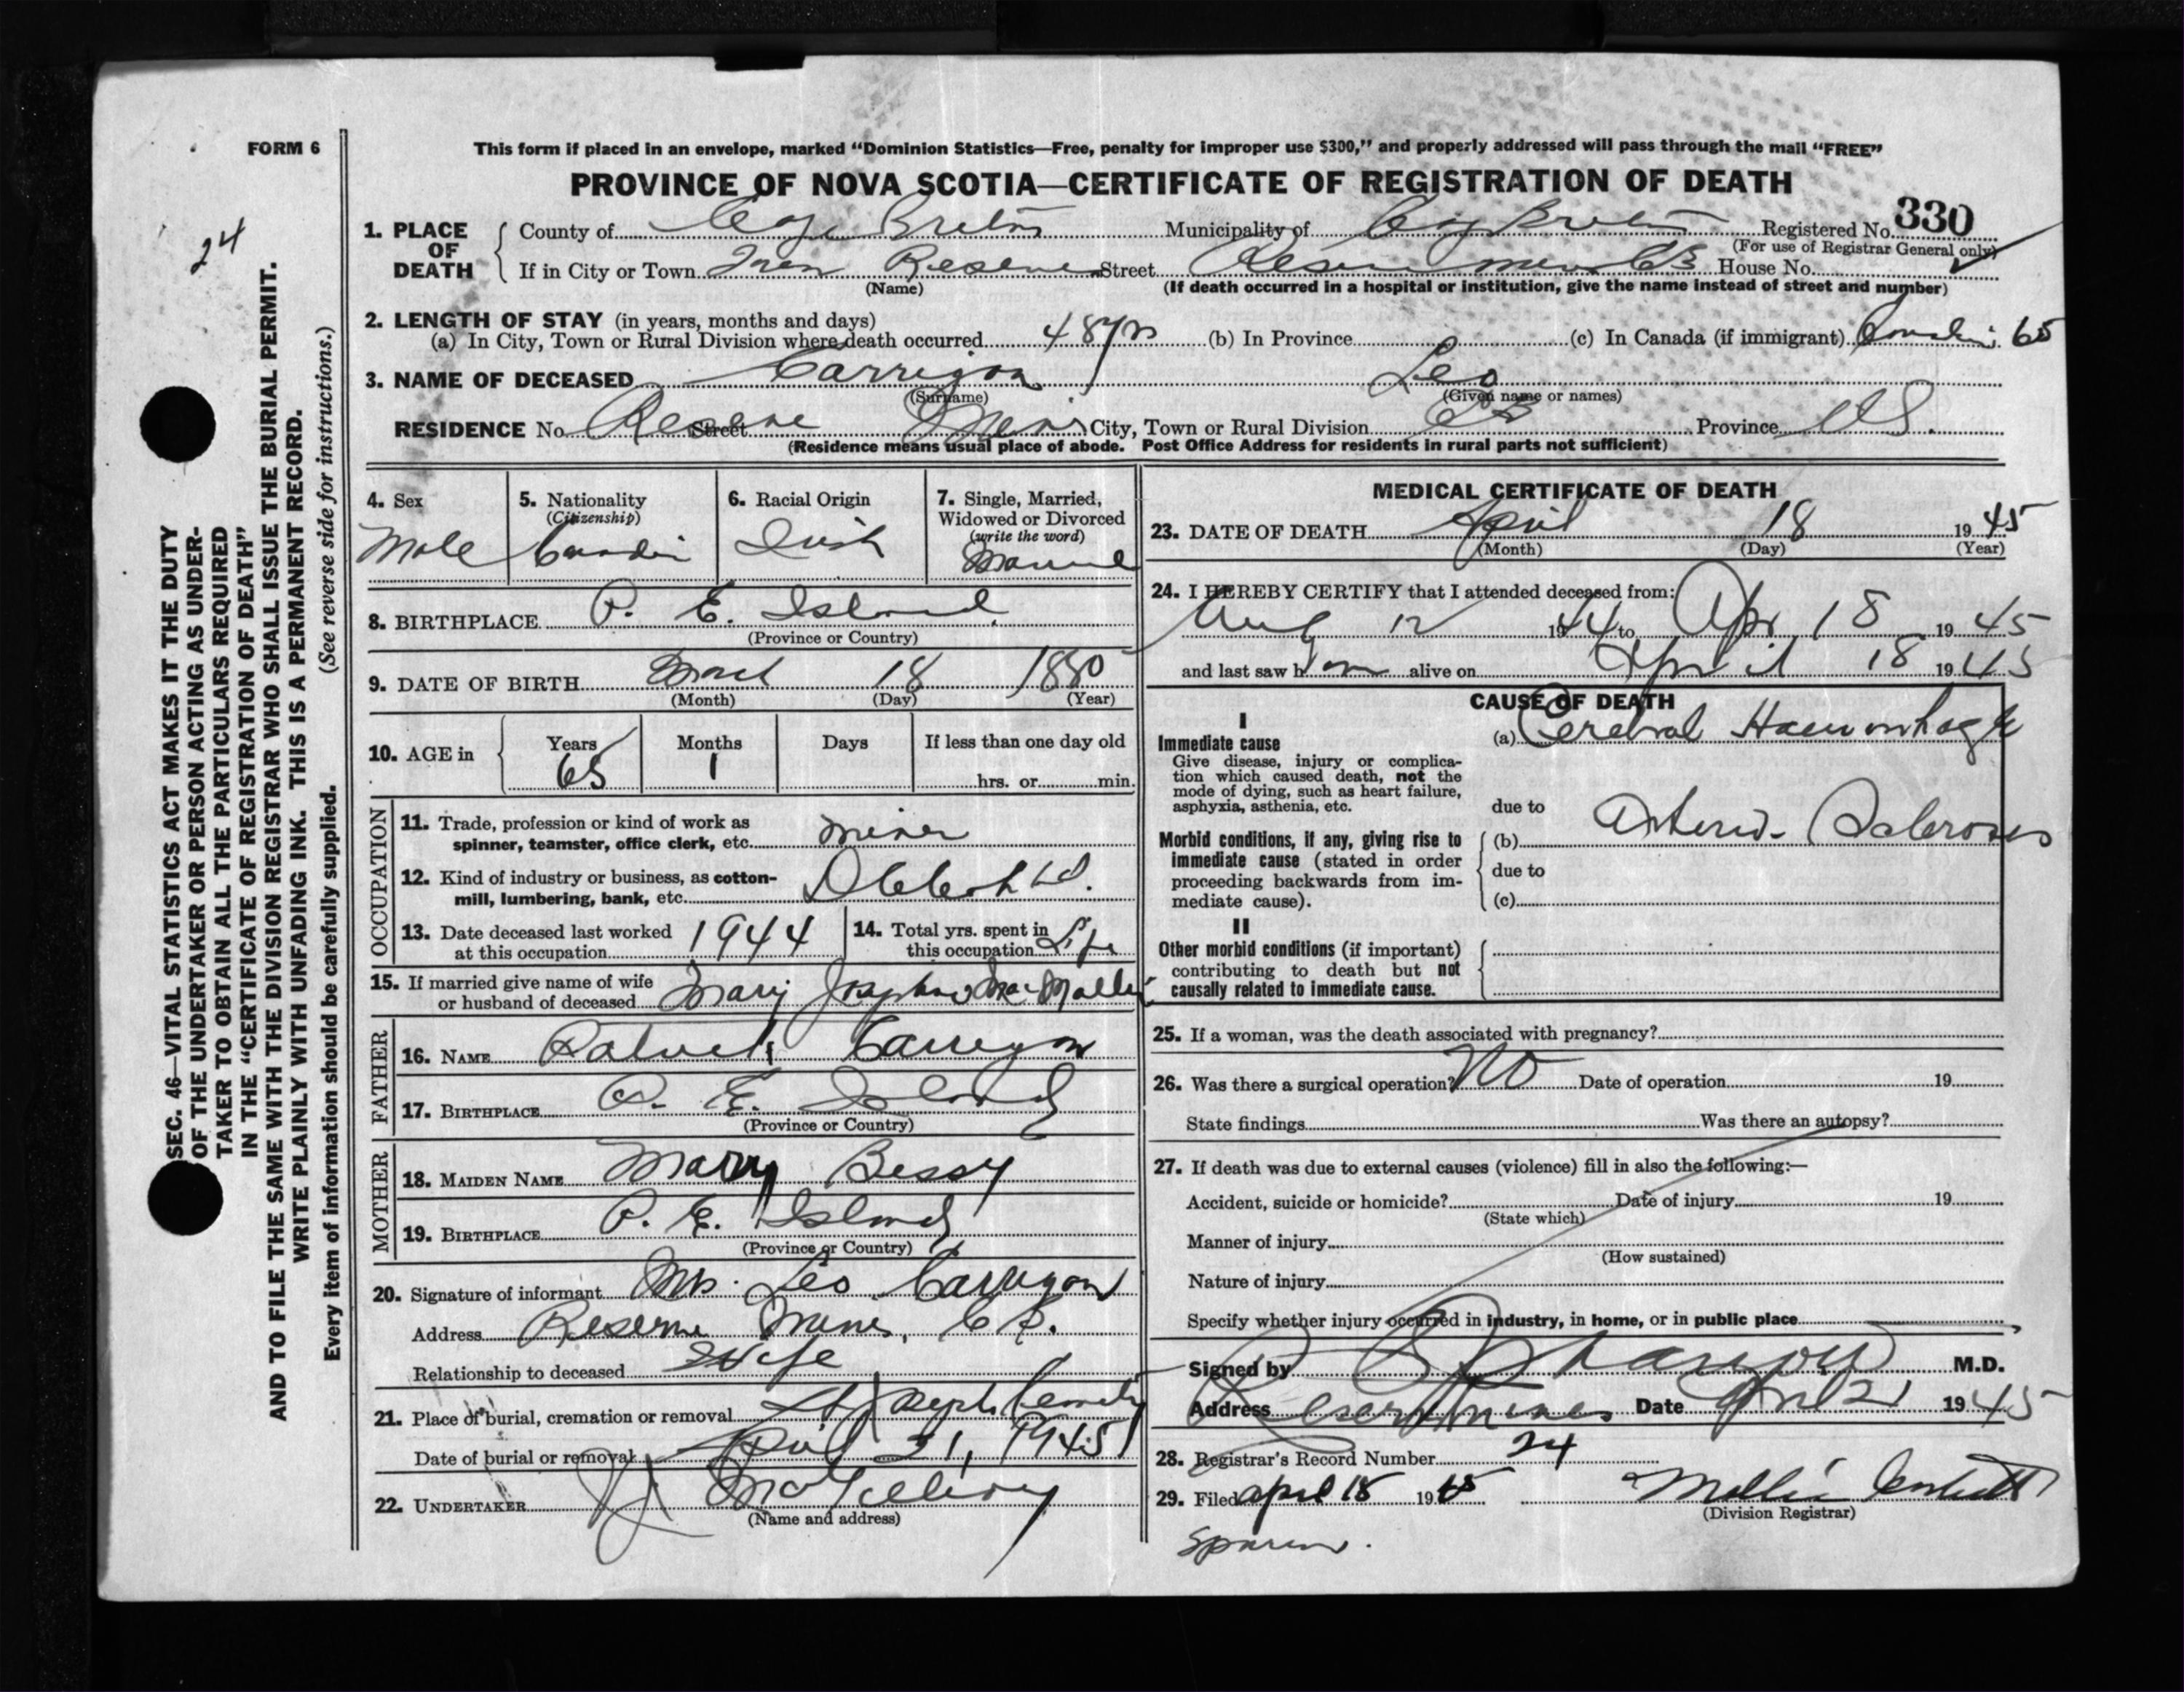 FORM 6
This form if placed in an envelope, marked "Dominion Statistics—Free, penalty for improper use $300," and properly addressed will pass through the mail "FREE"
PROVINCE OF NOVA SCOTIA—CERTIFICATE OF REGISTRATION OF DEATH
24
1. PLACE OF DEATH
County of Cape Breton Municipality of Cape Breton Registered No. 330
(For use of Registrar General only)
If in City or Town Reserve Street Reserve Mines CB House No.
(Name) (If death occurred in a hospital or institution, give the name instead of street and number)
2. LENGTH OF STAY (in years, months and days)
(a) In City, Town or Rural Division where death occurred 48 yrs (b) In Province (c) In Canada (if immigrant) 65
3. NAME OF DECEASED Carrigan Leo
(Surname) (Given name or names)
RESIDENCE No. Reserve Street Mines City, Town or Rural Division CB Province N.S.
(Residence means usual place of abode. Post Office Address for residents in rural parts not sufficient)
4. Sex
Male
5. Nationality
(Citizenship)
6. Racial Origin
Irish
7. Single, Married, Widowed or Divorced
(write the word)
Married
8. BIRTHPLACE P. E. Island.
(Province or Country)
9. DATE OF BIRTH March 18 1880
(Month) (Day) (Year)
10. AGE in
Years Months Days If less than one day old
65 1 hrs. or min.
OCCUPATION
11. Trade, profession or kind of work as spinner, teamster, office clerk, etc. Miner
12. Kind of industry or business, as cotton-mill, lumbering, bank, etc.
13. Date deceased last worked at this occupation 1944
14. Total yrs. spent in this occupation Life
15. If married give name of wife or husband of deceased Mary Josephine
FATHER
16. NAME Patrick Carrigan
17. BIRTHPLACE P. E. Island
(Province or Country)
MOTHER
18. MAIDEN NAME Mary Bessy
19. BIRTHPLACE P. E. Island
(Province or Country)
20. Signature of informant Mrs. Leo Carrigan
Address Reserve Mines, C B.
Relationship to deceased Wife
21. Place of burial, cremation or removal St Joseph Cemetery
Date of burial or removal April 21, 1945
22. UNDERTAKER McGillivray
(Name and address)
MEDICAL CERTIFICATE OF DEATH
23. DATE OF DEATH April 18 1945
(Month) (Day) (Year)
24. I HEREBY CERTIFY that I attended deceased from:
Aug 12 1944 to Apr 18 1945
and last saw him alive on April 18 1945
CAUSE OF DEATH
I
Immediate cause
Give disease, injury or complica-
tion which caused death, not the
mode of dying, such as heart failure,
asphyxia, asthenia, etc.
(a) Cerebral Haemorrhage
due to
Morbid conditions, if any, giving rise to
immediate cause (stated in order
proceeding backwards from im-
mediate cause).
(b) Arterio-Sclerosis
due to
(c)
II
Other morbid conditions (if important)
contributing to death but not
causally related to immediate cause.
25. If a woman, was the death associated with pregnancy?
26. Was there a surgical operation? No Date of operation 19
State findings Was there an autopsy?
27. If death was due to external causes (violence) fill in also the following:—
Accident, suicide or homicide? Date of injury 19
(State which)
Manner of injury
(How sustained)
Nature of injury
Specify whether injury occurred in industry, in home, or in public place
Signed by M.D.
Address Reserve Mines Date April 21 1945
28. Registrar's Record Number 24
29. Filed April 18 1945 Mollie
(Division Registrar)
SEC. 46—VITAL STATISTICS ACT MAKES IT THE DUTY
OF THE UNDERTAKER OR PERSON ACTING AS UNDER-
TAKER TO OBTAIN ALL THE PARTICULARS REQUIRED
IN THE "CERTIFICATE OF REGISTRATION OF DEATH"
AND TO FILE THE SAME WITH THE DIVISION REGISTRAR WHO SHALL ISSUE THE BURIAL PERMIT.
WRITE PLAINLY WITH UNFADING INK. THIS IS A PERMANENT RECORD.
Every item of information should be carefully supplied. (See reverse side for instructions.)